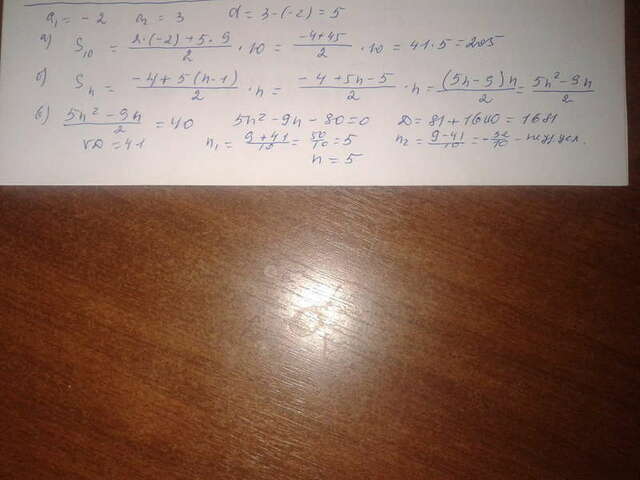 a₁ = -2 a₂ = 3 d = 3-(-2) = 5
а) S₁₀ = (2·(-2)+5·9)/2 · 10 = (-4+45)/2 · 10 = 41·5 = 205
б) Sₙ = (-4+5(n-1))/2 · n = (-4+5n-5)/2 · n = (5n-9)n/2 = (5n²-9n)/2
в) (5n²-9n)/2 = 40 5n²-9n-80=0 D = 81+1600 = 1681
√D = 41 n₁ = (9+41)/10 = 50/10 = 5 n₂ = (9-41)/10 = -32/10 -
n = 5